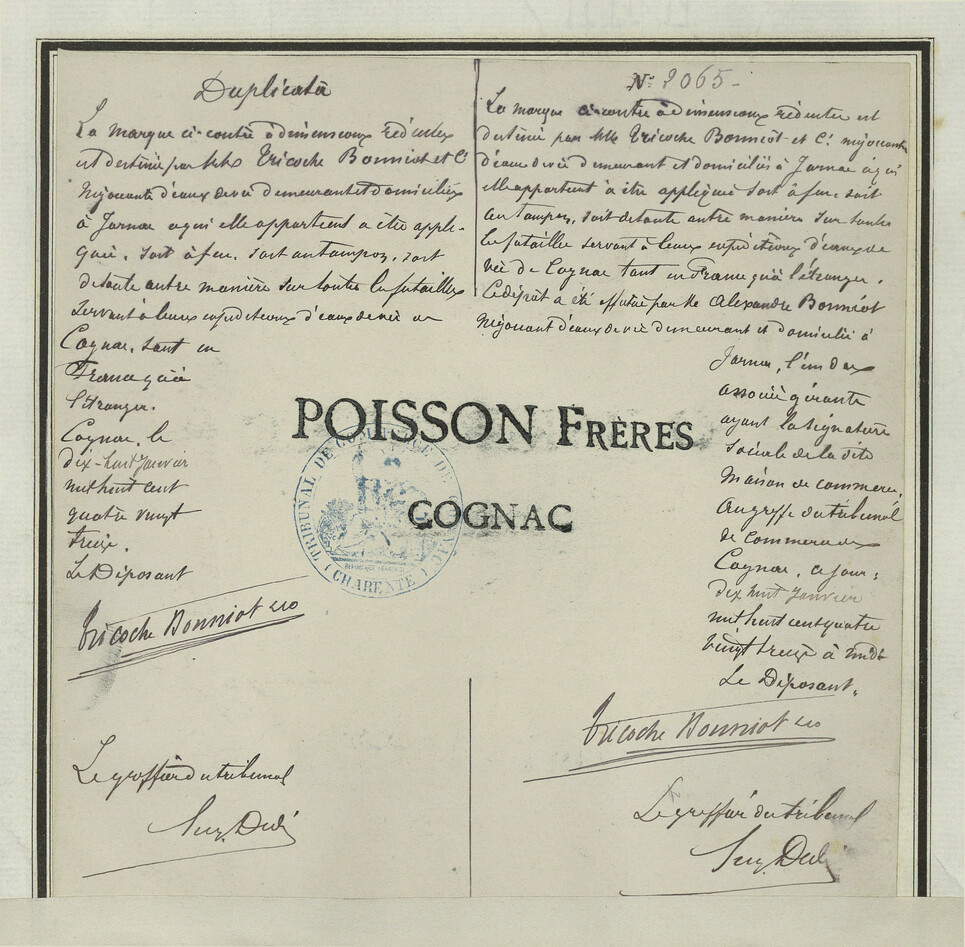 Duplicata
La marque ci-contre à dimensions réduites
est destinée par MM. Tricoche Bonniot et Cie
Négociants d'eaux de vie demeurant et domiciliés
à Jarnac a qui elle appartient a être appli-
quée, soit à feu, soit au tampon, soit
de toute autre manière sur toutes les futailles
servant à leurs expéditions d'eaux de vie de
Cognac, tant en
France qu'à
l'étranger.
Cognac, le
dix-huit Janvier
mil huit cent
quatre vingt
treize.
Le Déposant
Tricoche Bonniot & co
Le greffier du tribunal
No 2065 -
La marque ci-contre à dimensions réduites est
destinée par MM. Tricoche Bonniot et Cie négociants
d'eaux de vie demeurant et domiciliés à Jarnac à qui
elle appartient à être appliquée soit à feu, soit
au tampon, soit de toute autre manière sur toutes
les futailles servant à leurs expéditions d'eaux de
vie de Cognac tant en France qu'à l'étranger.
Ce dépôt a été effectué par Mr Alexandre Bonniot
Négociant d'eaux de vie demeurant et domicilié à
Jarnac, l'un des
associés gérants
ayant la signature
sociale de la dite
Maison de commerce,
au greffe du tribunal
de Commerce de
Cognac, ce jour:
dix huit Janvier
mil huit cent quatre
vingt treize à midi
Le Déposant,
Tricoche Bonniot & co
Le greffier du tribunal
POISSON FRÈRES
COGNAC
TRIBUNAL DE COMMERCE DE
(CHARENTE)